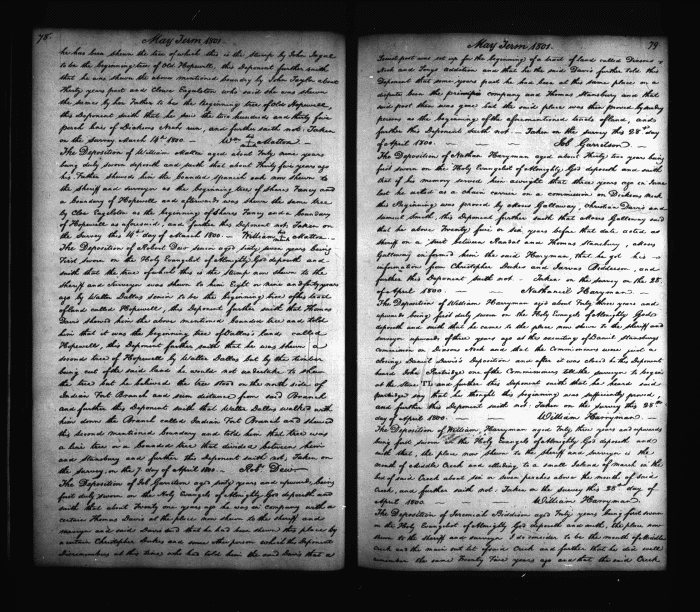 78
May Term 1801
he has been shewn the tree of which this is the stump by John
to be the beginning tree of Old Hopewell, this Deponent further saith
that he was shewn the above mentioned boundary by John Taylor about
thirty years past and Eleanor Eagleston who said she was shewn
the same by her Father to be the Beginning tree of Old Hopewell,
this Deponent saith that he saw the two hundred and thirty five
perch line of Dicksons Neck run, and further saith not: Taken
on the survey March 14th 1800 — Wm Matton
The Deposition of William Matton aged about Fifty nine years
being duly sworn deposeth and saith that about thirty five years ago
his Father shewed him the bounded spanish oak now shewn to
the sheriff and surveyor as the beginning tree of Shares Fancy and
a boundary of Hopewell and afterwards was shewn the same tree
by Eagleston as the beginning of Shares Fancy and a boundary
of Hopewell as aforesaid, and further this Deponent not, Taken on
the Survey this 14th day of March 1800. — William Matton
The Deposition of Robert Dew senior aged sixty seven years being
First sworn on the Holy Evangels of Almighty God deposeth and
saith that the tree of which this is the stump now shewn to the
sheriff and surveyor was shewn to him Eight or nine and forty years
ago by Walter Dallas senior to be the beginning tree of the tract
of land called Hopewell, this Deponent further saith that Thomas
Davis shewed him the above mentioned boundary tree and told
him that it was the beginning tree of Dallas's land called
Hopewell, this Deponent further saith that he was shewn a
second tree of Hopewell by Walter Dallas but by the timber
being cut off the said land he would not undertake to shew
the tree but he believed the tree stood on the north side of
Indian Fort Branch and some distance from said Branch
and further this Deponent saith that Walter Dallas walked with
him down the Branch called Indian Fort Branch and shewed
this second mentioned boundary and told him that tree was
a line tree or a bounded tree that divided between him
and Stansbury and further this Deponent saith not, Taken on
the survey, on the 7 day of April 1800 — Robt Dew
The Deposition of Job Garretson aged sixty years and upwards, being
first duly sworn on the Holy Evangels of Almighty God deposeth and
saith that about Twenty one years ago he was in company with a
certain Thomas Davis at the place now shewn to the sheriff and
surveyor and said Davis said that he had been shewed this place by
a certain Christopher Dukes and some other person which the Deponent
Disremembers at this time who had told him the said Davis that a
79
May Term 1801.
Locust post was set up for the beginning of a tract of land called Dicksons
Neck and Tonys Addition and that he the said Davis further told this
Deponent that some years past he had been at this same place on a
dispute between the principio company and Thomas Stansbury and that
said post then was gone but the said place was then proved by sundry
persons as the beginning of the aforementioned tracts of land, and
further this Deponent saith not — Taken on the survey this 28th day
of April 1800. — Job Garretson —
The Deposition of Nathan Harryman aged about Thirty two years being
first sworn on the Holy Evangels of Almighty God deposeth and saith
that if his memory served him aright that three years ago in June
last he acted as a chain carrier on a commission on Dicksons Neck
this Beginning was proved by Moses Galloway, Christian Davis and
Samuel Smith, this Deponent further saith that Moses Galloway said
that he above Twenty five or six years before that date acted as
sheriff on a suit between Randal and Thomas Stansbury, Moses
Galloway informed him the said Harryman, that he got his
information from Christopher Dukes and Jarvas Biddeson, and
further this Deponent saith not. — Taken on the survey on the 28
of April 1800. — Nathaniel Harryman —
The Deposition of William Harryman aged about Fifty three years and
upwards being first duly sworn on the Holy Evangels of Almighty God
deposeth and saith that he came to the place now shewn to the sheriff and
surveyor upwards of three years ago at the executing of Daniel Stansburys
commission on Dicksons Neck and that the Commissioners were just a
closing Daniel Davis's Deposition and after it was closed he this Deponent
heard John Partridge one of the Commissioners tell the surveyor to begin
at the stone TL and further this Deponent saith that he heard said
partridge say that he thought this beginning was sufficiently proved,
and further this Deponent saith not: taken on the survey this 28th
day of April 1800. — William Harryman. —
The Deposition of William Harryman aged Fifty three years and upwards
being first sworn on the Holy Evangels of Almighty God deposeth and
saith that, the place now shewn to the sheriff and surveyor is the
mouth of Middle Creek and allluding to a small Island of marsh in the
of said Creek about six or seven perches above the mouth of said
Creek, and further saith not: Taken on the survey this 28th day of
April 1800. — William Harryman.
The Deposition of Jeremiah Biddison aged Fifty years being first sworn
on the Holy Evangels of Almighty God deposeth and saith, the place now
shewn to the sheriff and surveyor I do consider to be the mouth of Middle
creek and the main out let of said Creek and further that he did well
remember the same Twenty Five years ago and that the said Creek